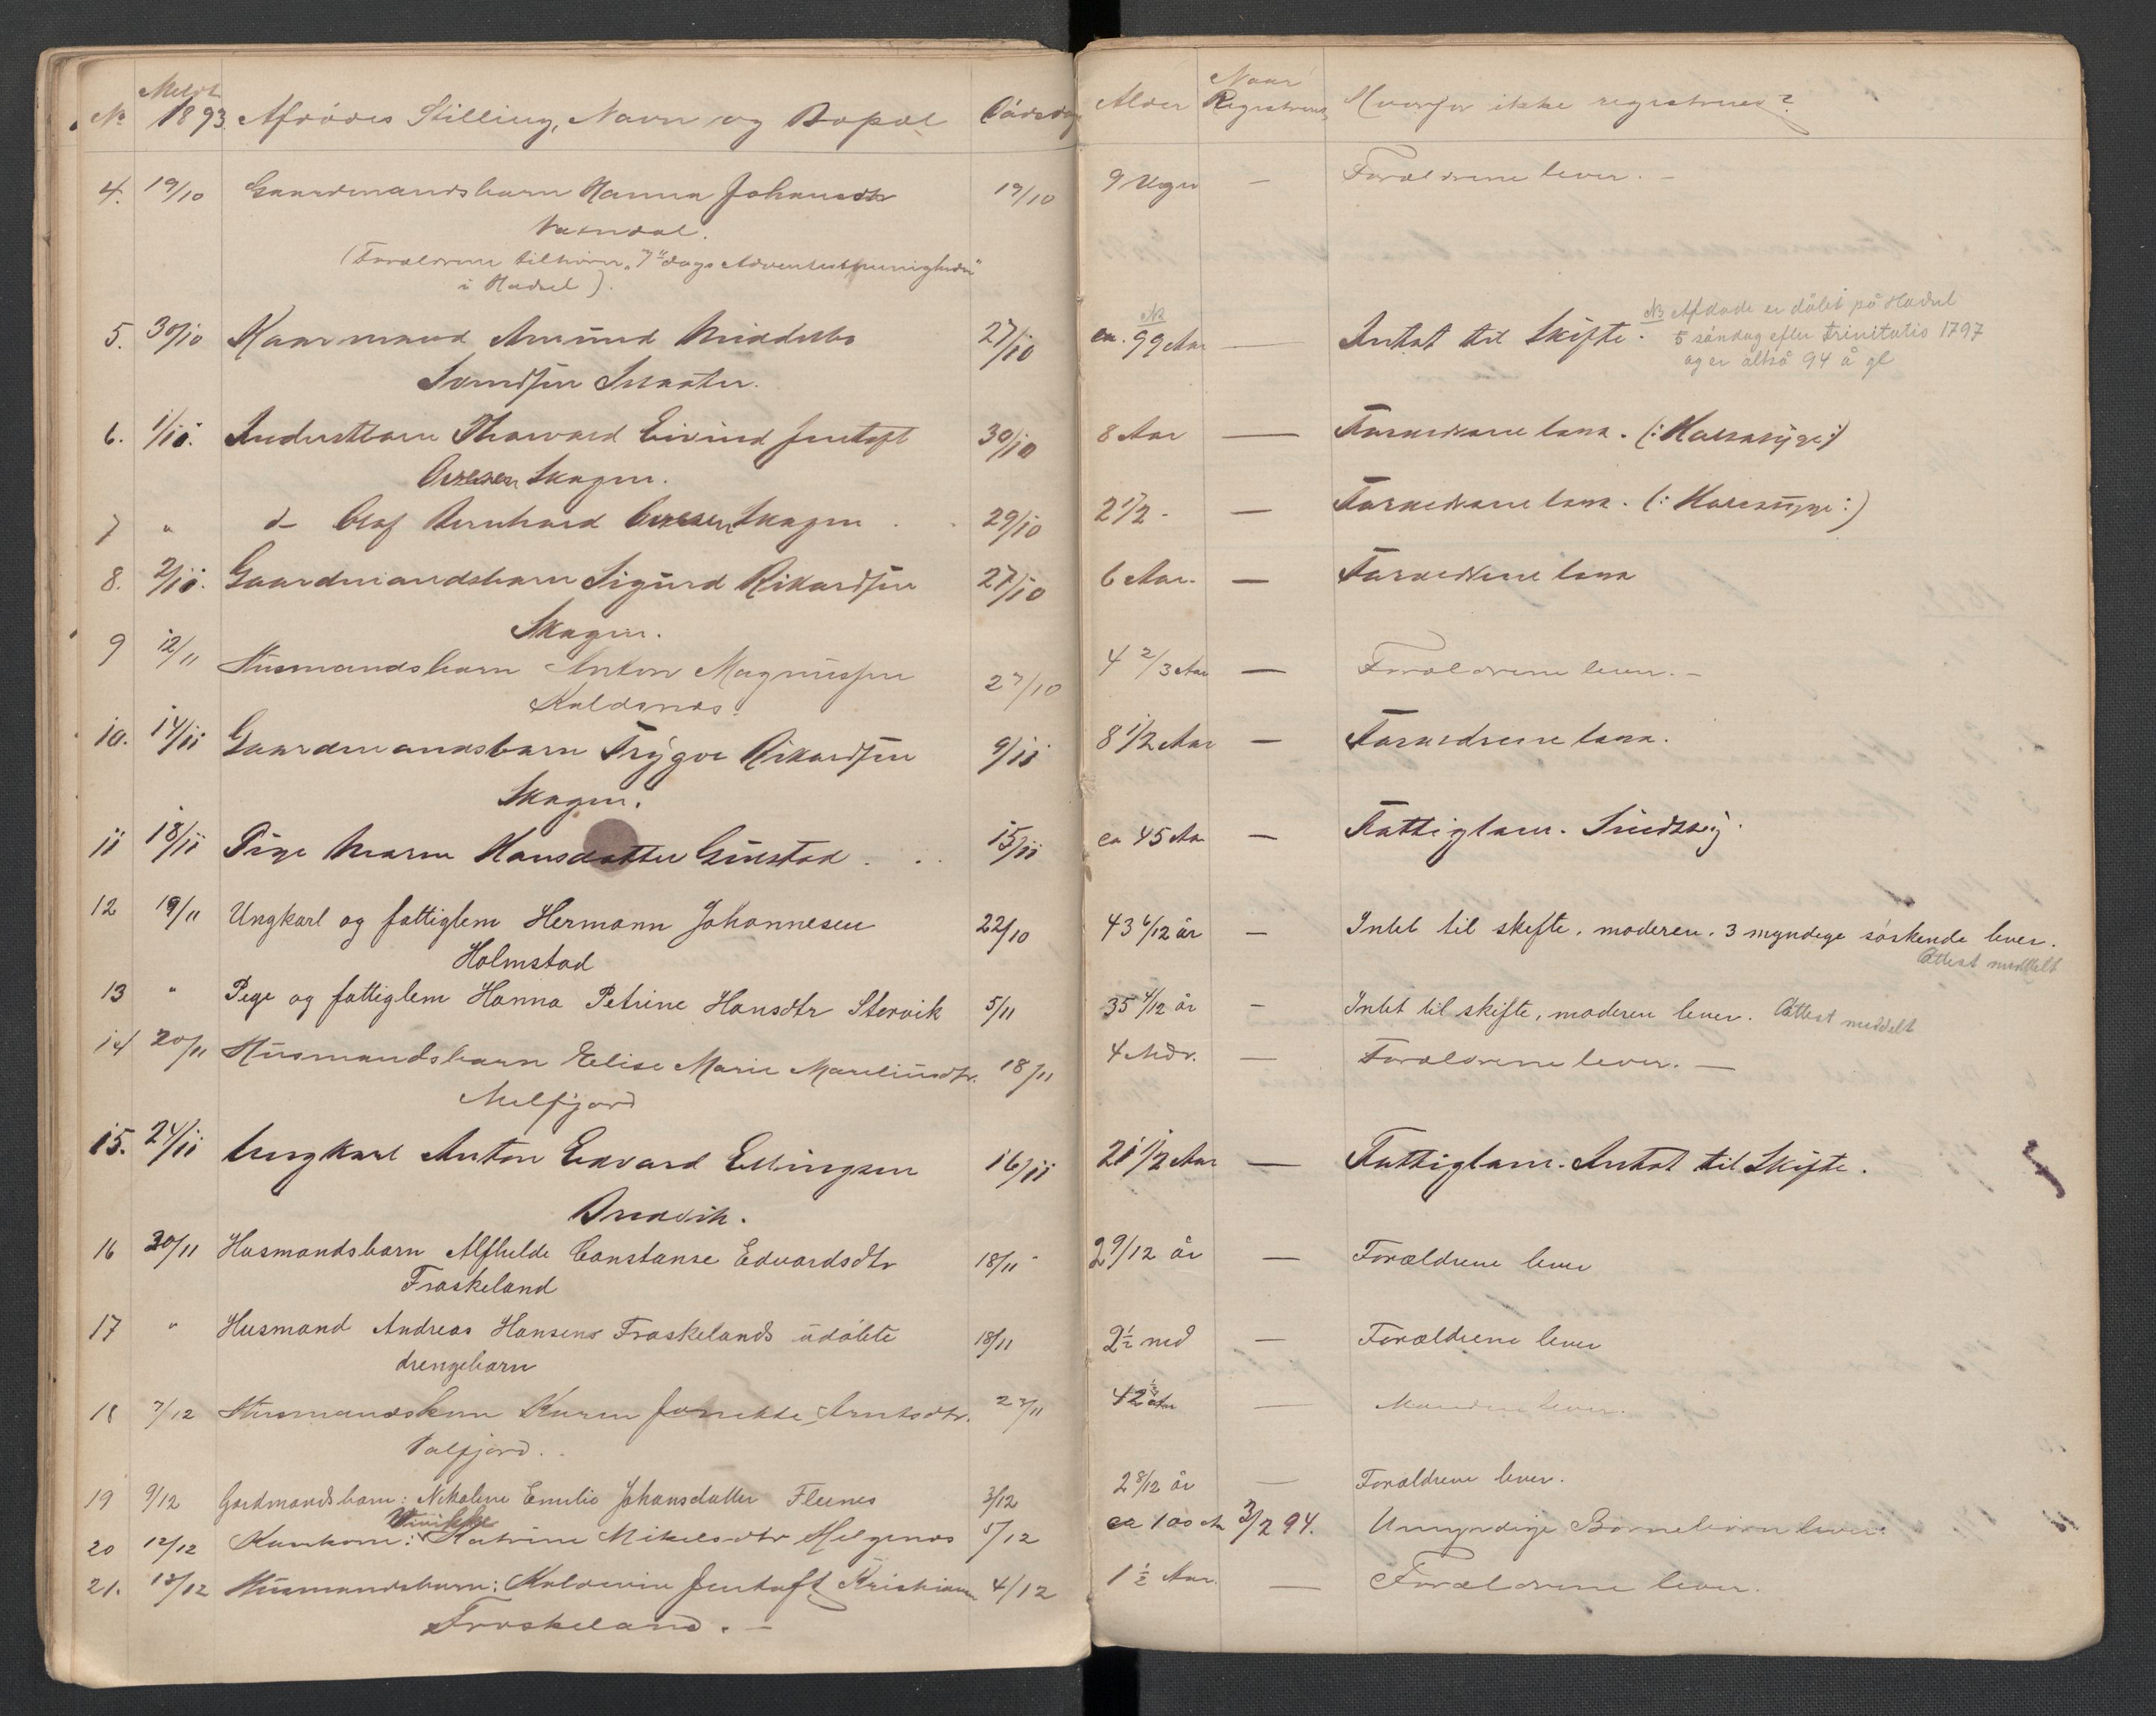 No Meldt 1893. Afdödes Stilling, Navn og Bopæl Dödsdag Alder Naar Registreret Hvorfor ikke registreret?
4. 19/10 Gaardmandsbarn Hanna Johansdtr 19/10 9 Uger — Forældrene lever. —
(Forældrene tilhører "7de dags Adventistmenigheden"
i Hadsel).
NB Afdöde er döbt på Hadsel
5. 30/10 Kaarmand Amund 27/10 ca. 99 Aar — Intet til Skifte. 5 söndag efter trinitatis 1797
og er altså 94 å gl
6. 1/11. Inderstbarn Thorvard Eivind Jentoft 30/10 8 Aar — Forældrene lever. (: Halssyge :)
Skagen.
7 " d- Olaf Bernhard Skagen . . 29/10 2 1/2 - — Forældrene lever. (: Halssyge :)
8. 2/11. Gaardmandsbarn Sigurd Rikardsen 27/10 6 Aar. — Forældrene lever
Skagen.
9 12/11 Husmandsbarn Anton Magnussen 27/10 4 2/3 Aar — Forældrene lever. —
Kaldsnes.
10. 14/11 Gaardmandsbarn Trygve Rikardsen 9/11 8 1/2 Aar — Forældrene lever.
Skagen.
11 18/11 Pige Maren Hansdatter Guvstad . . 15/11 ca 45 Aar — Fattiglem. Sindssyg.
12 19/11 Ungkarl og fattiglem Hermann Johannesen 22/10 43 6/12 år — Intet til skifte, moderen. 3 myndige söskende lever.
Holmstad Attest meddelt
13 " Pige og fattiglem Hanna Petrine Hansdtr Stervik 5/11 35 4/12 år — Intet til skifte, moderen lever. Attest meddelt
14 20/11 Husmandsbarn Elise Marie Mareliusdtr. 18/11 4 Mdr. — Forældrene lever. —
Melfjord
15. 24/11 Ungkarl Anton Edvard Ellingsen 16/11 21 1/2 Aar — Fattiglem. Intet til Skifte.
Bredvik.
16 30/11 Husmandsbarn Alfhilde Constanse Edvardsdtr 18/11 2 9/12 år — Forældrene lever
Froskeland
17 " Husmand Andreas Hansens Froskelands udöbte 18/11 2 1/2 md — Forældrene lever
drengebarn
18 7/12 Husmandskone Karen Jonette Arntsdtr. 23/11 42 1/2 Aar — Manden lever.
Valfjord.
19 9/12 Gardmandsbarn: Nikoline Emilie Johansdatter Flesnes 3/12 2 8/12 år — Forældrene lever.
20 12/12 Kaarkone: Katrine Mikelsdtr Helgenes 5/12 ca 100 Aar 3/2 94. Umyndige Børnebörn lever.
21. 13/12 Husmandsbarn: Kaldervin Jentoft Kristiansen 4/12 1 1/2 Aar. — Forældrene lever.
Froskeland. —